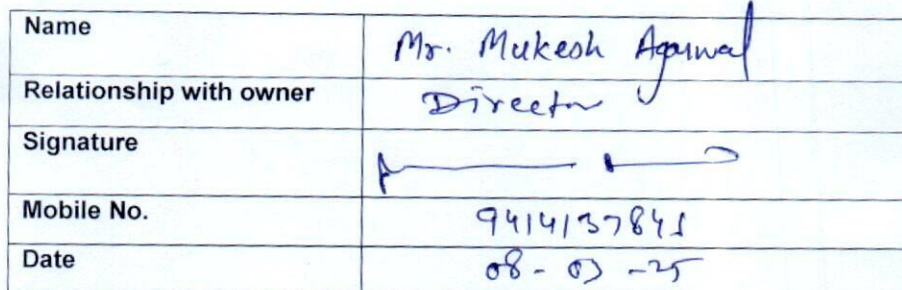 Name Mr. Mukesh Agarwal
Relationship with owner Director
Signature
Mobile No. 9414137841
Date 08-03-25